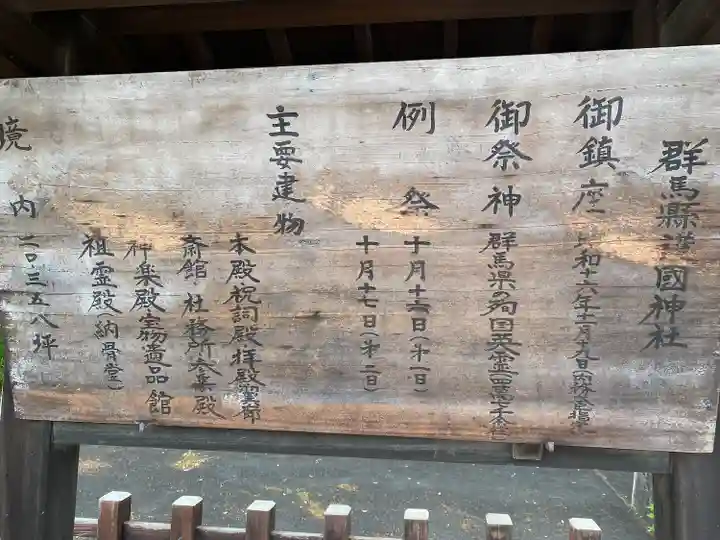 群馬縣護國神社
御鎮座 昭和十六年十一月十九日(内務大臣指定)
御祭神 群馬県の殉国英霊
例祭 十月十六日(第一日)
十月十七日(第二日)
主要建物
本殿祝詞殿拝殿翼廊
斎館 社務所参集殿
神楽殿宝物遺品館
祖霊殿(納骨堂)
境内 二〇三五八坪